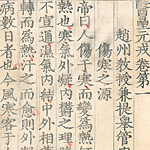 醫壘元戎卷第一
趙州教授兼提舉管內
傷寒之源
帝曰人傷于寒而變為熱
熱也寒氣外凝內鬱之理
不宣通濕氣內結中外相
轉而為熱汗之而愈則
病數日者也今風寒客于